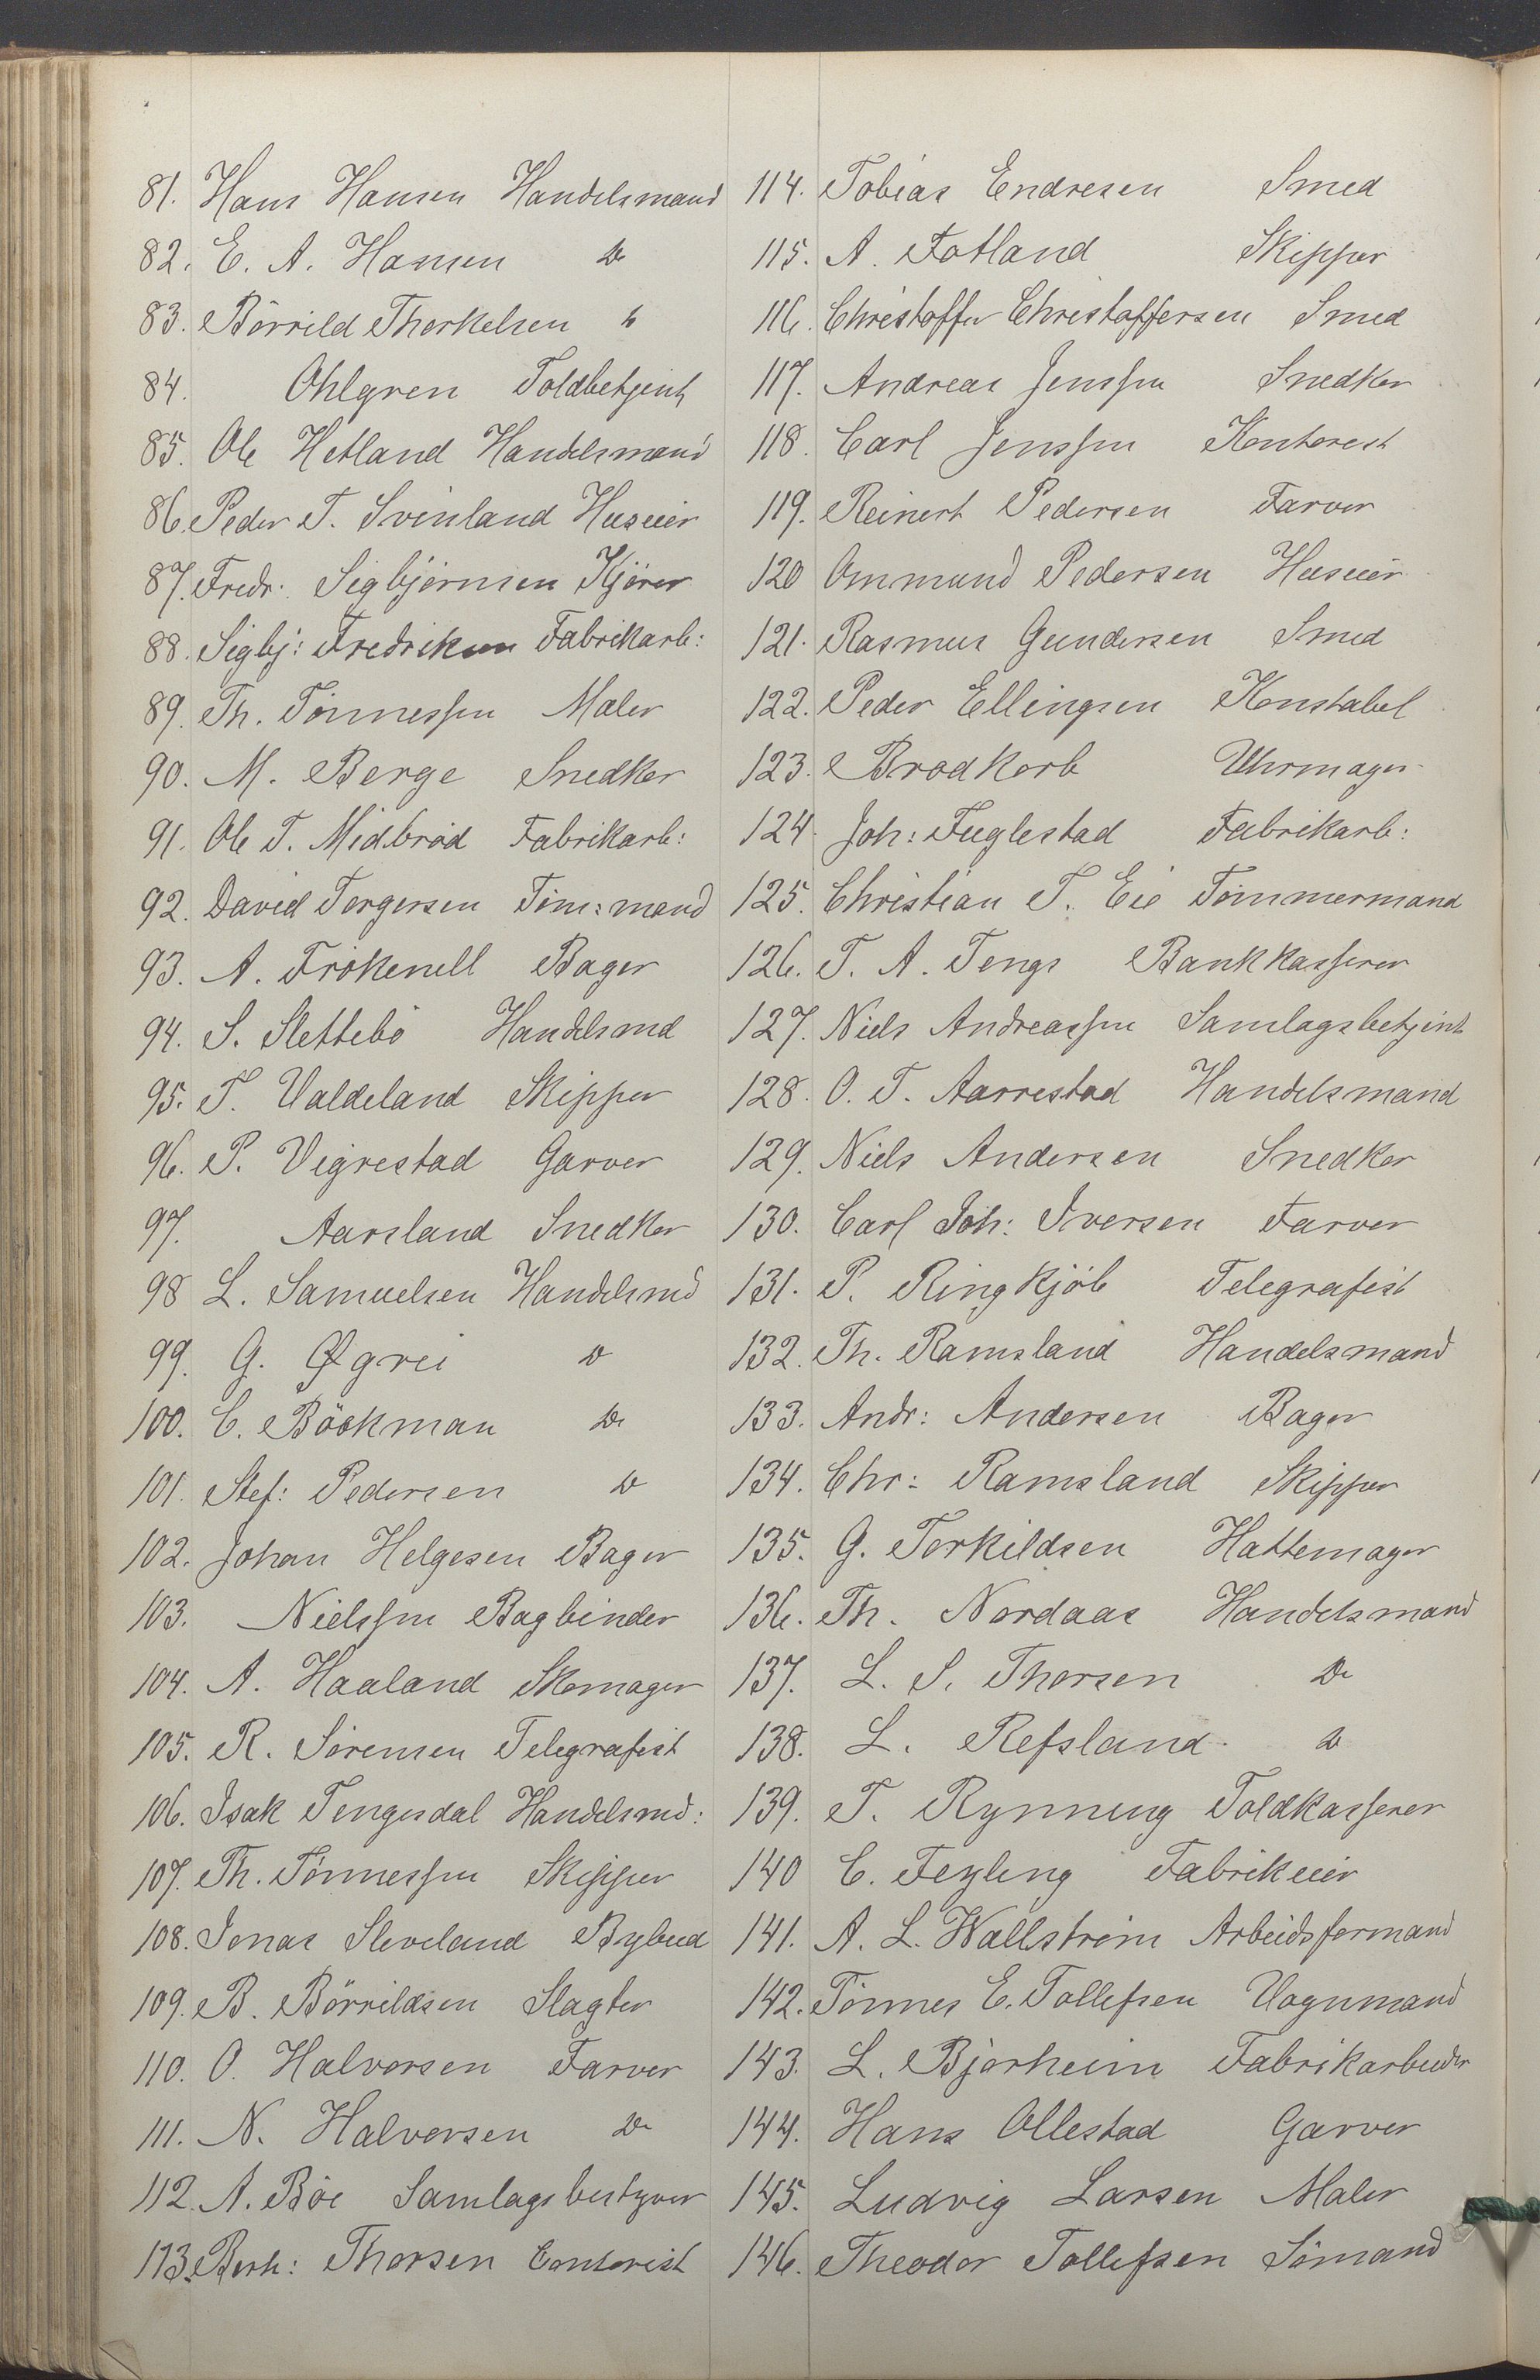 81. Hans Hansen Handelsmand
82. E. A. Hansen Do
83. Börrild Thorkelsen Do
84. Ohlgren Toldbetjent
85. Ole Hetland Handelsmand
86. Peder T. Svinland Huseier
87. Fredr. Sigbjörnsen Kjörer
88. Sigbj: Fredriksen Fabrikarb:
89. Th. Tönnessen Maler
90. M. Berge Snedker
91. Ole T. Midbröd Fabrikarb:
92. David Torgersen Töm:mand
93. A. Trökenell Bager
94. S. Slettebö Handelsmd
95. T. Valdeland Skipper
96. P. Vigrestad Garver
97. Aarsland Snedker
98 L. Samuelsen Handelsmd
99. G. Øgrei Do
100. C. Böckman Do
101. Stef: Pedersen Do
102. Johan Helgesen Bager
103. Nielssen Bogbinder
104. A. Haaland Skomager
105. R. Sörensen Telegrafist
106. Isak Tengesdal Handelsmd:
107. Th. Tönnessen Skipper
108. Jonas Sleveland Bybud
109. B. Börrildsen Slagter
110. O. Halvorsen Farver
111. N. Halvorsen Do
112. A. Böe Samlagsbestyrer
113. Berh: Thorsen Contorist
114. Tobias Endresen Smed
115. A. Fotland Skipper
116. Christoffer Christoffersen Smed
117. Andreas Jenssen Snedker
118. Carl Jenssen Kontorist
119. Reinert Pedersen Farver
120 Ommund Pedersen Huseier
121. Rasmus Gundersen Smed
122. Peder Ellingsen Konstabel
123. Brodkorb Uhrmager
124. Joh: Fuglestad Fabrikarb:
125. Christian T. Eie Tömmermand
126. T. A. Tengs Bankkasserer
127. Niels Andreassen Samlagsbetjent
128. O. T. Aarrestad Handelsmand
129. Niels Andersen Snedker
130. Carl Joh: Iversen Farver
131. P. Ringkjöb Telegrafist
132. Th. Ramsland Handelsmand
133. Andr: Andersen Bager
134. Chr: Ramsland Skipper
135. G. Torkildsen Hattemager
136. Th. Nordaas Handelsmand
137. L. S. Thorsen Do
138. L. Refsland Do
139. T. Rynning Toldkasserer
140 C. Feyling Fabrikeier
141. A. L. Wallström Arbeidsformand
142. Tönnes E. Tollefsen Vognmand
143. L. Bjorheim Fabrikarbeider
144. Hans Ollestad Garver
145. Ludvig Larsen Maler
146. Theodor Tollefsen Sömand